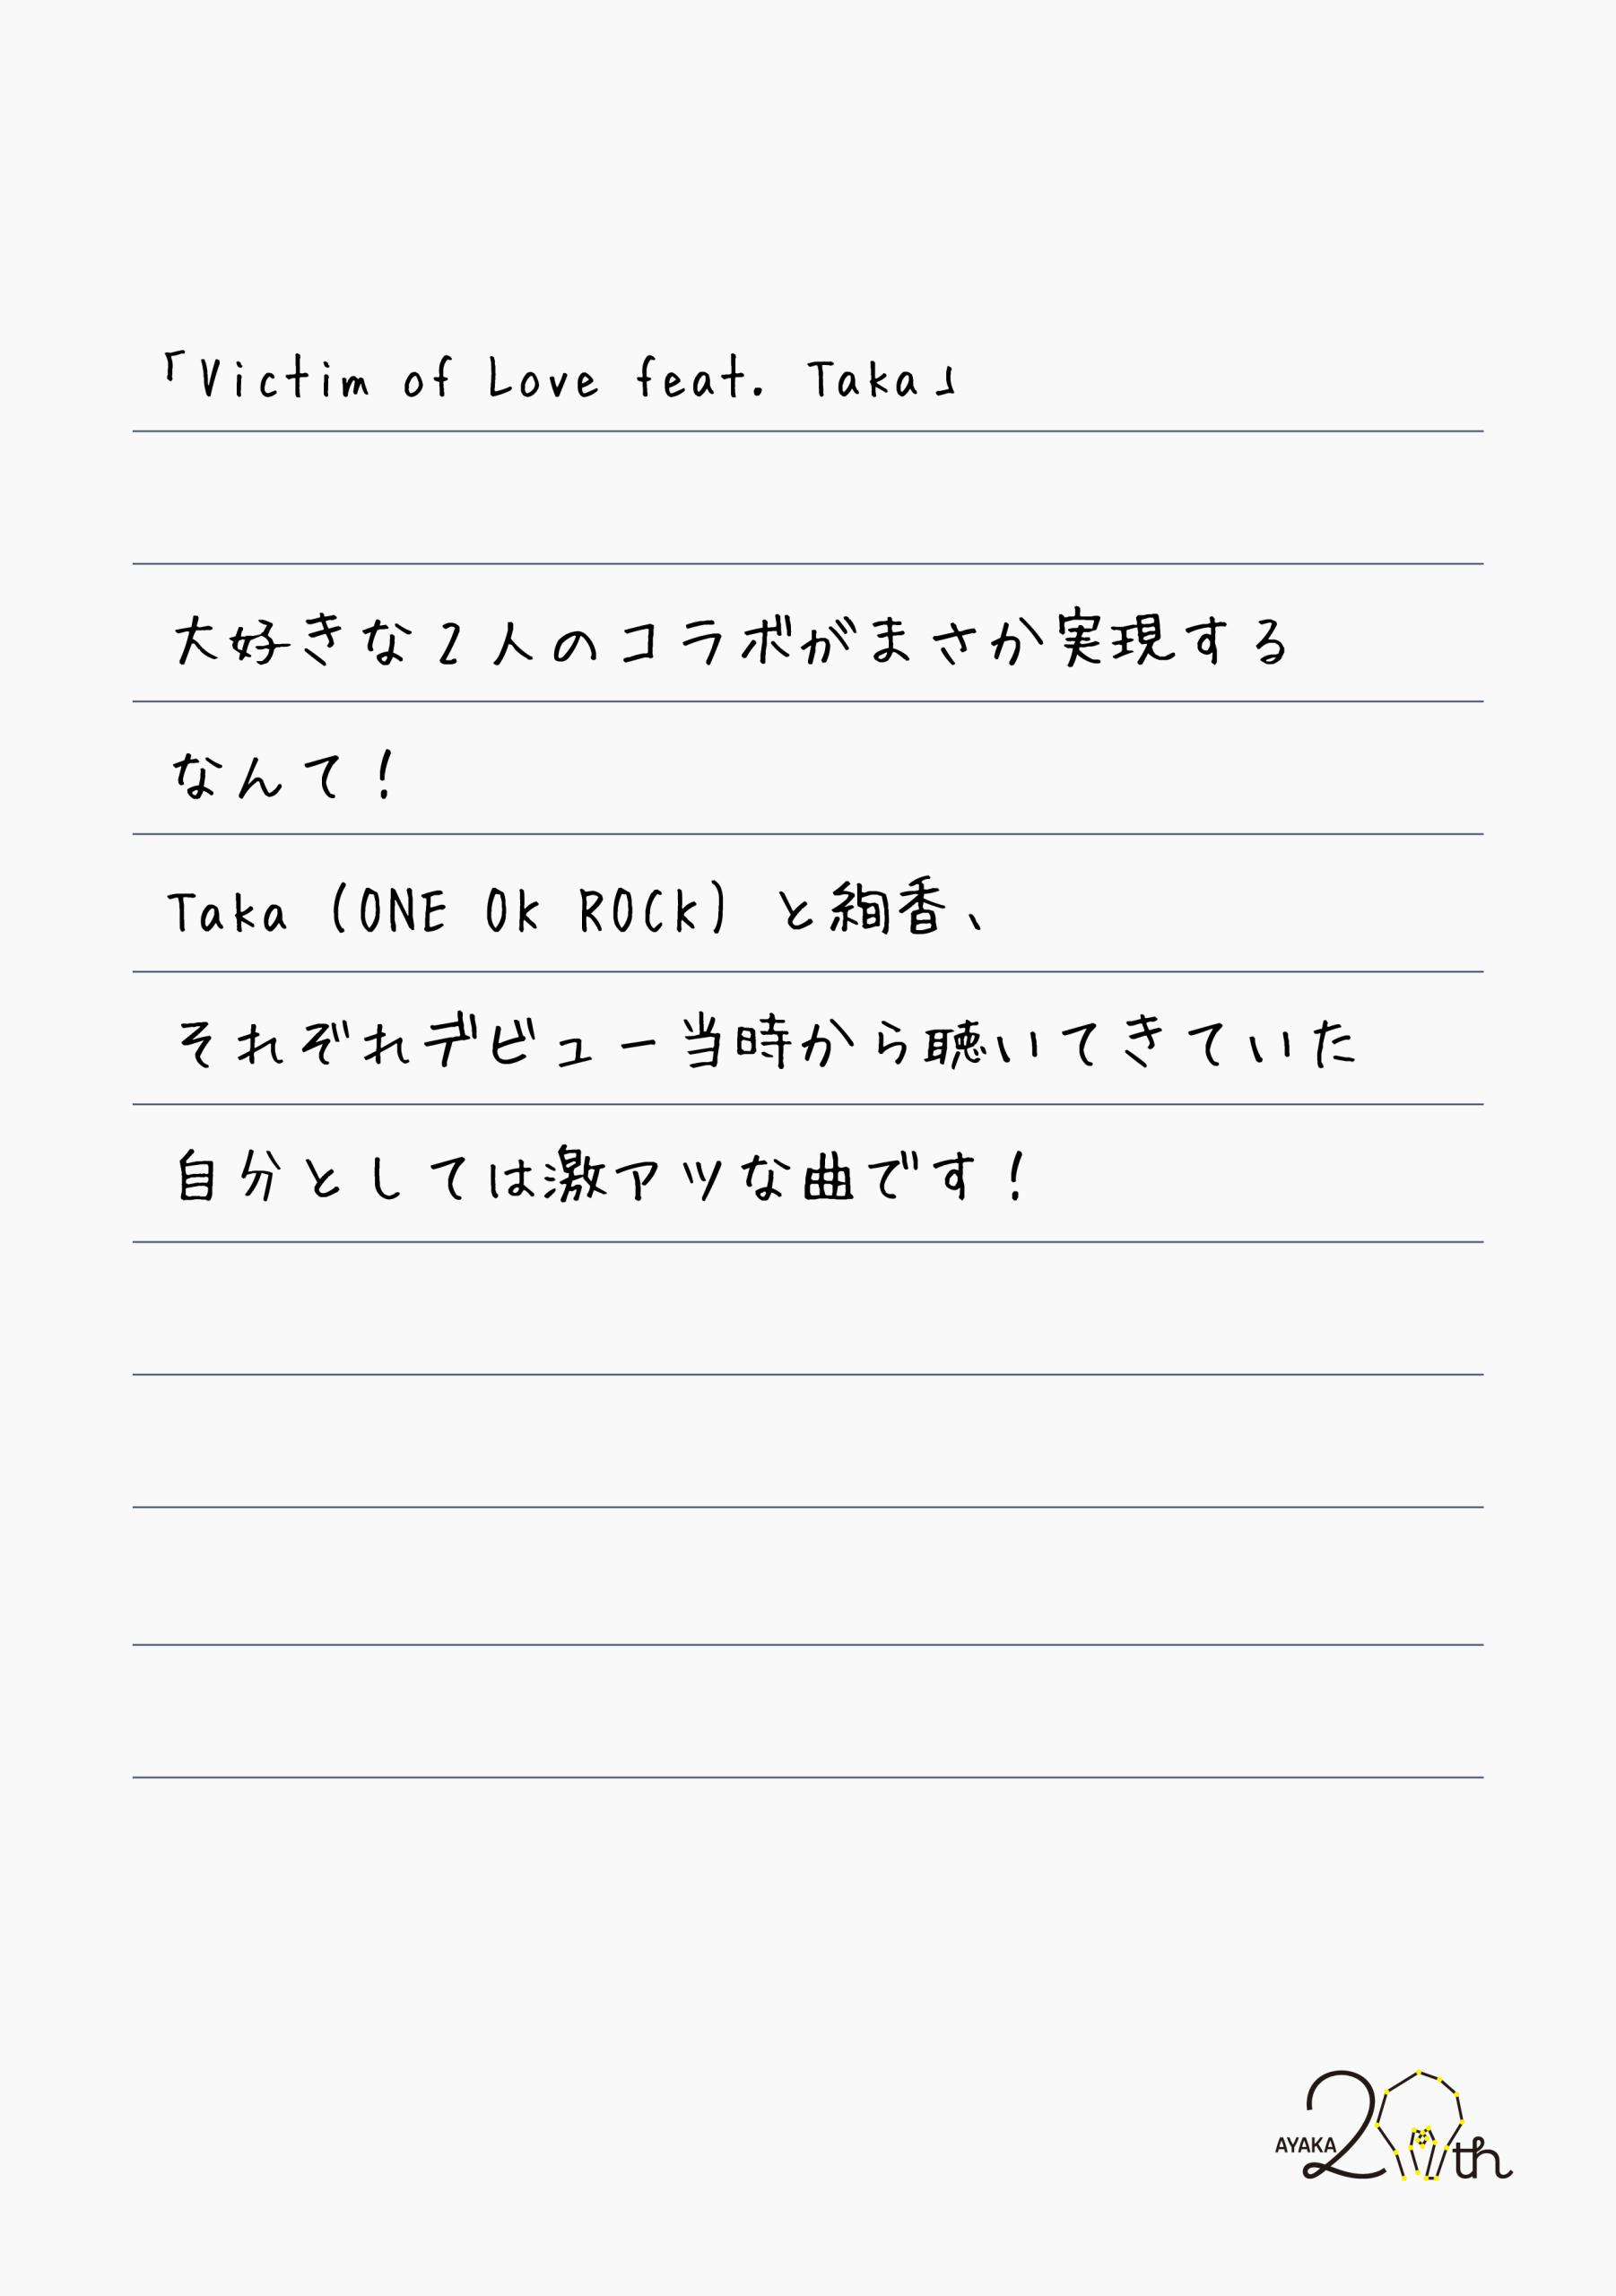 「Victim of Love feat. Taka」
大好きな2人のコラボがまさか実現する
なんて！
Taka (ONE OK ROCK) と絢香、
それぞれデビュー当時から聴いてきていた
自分としては激アツな曲です！
AYAKA 20th